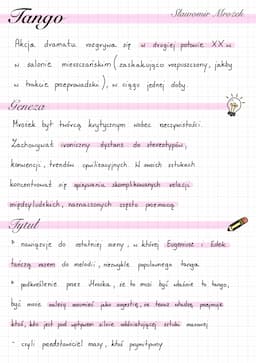 Tango
Sławomir Mrożek
Akcja dramatu rozgrywa się w drugiej połowie XX w.
w salonie mieszczańskim (zaskakująco rozpuszczony, jakby
w trakcie przeprowadzki), w ciągu jednej doby.
Geneza
Mrożek był twórcą krytycznym wobec rzeczywistości.
Zachowywał ironiczny dystans do stereotypów,
konwencji, trendów cywilizacyjnych. W swoich sztukach
koncentrował się opisywaniu skomplikowanych relacji
międzyludzkich, naznaczonych często przemocą
Tytuł
- nawiązuje do ostatniej sceny, w której Eugeniusz i Edek
tańczą razem do melodii, niezwykle popularnego tanga
* podkreślenie przez Mrożka, że to musi być właśnie to tango,
być może należy rozumieć jako sugestię, że teraz władzę przejmuje
ktoś, kto jest pod wpływem silnie oddziałującej sztuki masowej
- czyli przedstawiciel masy, ktoś prymitywny